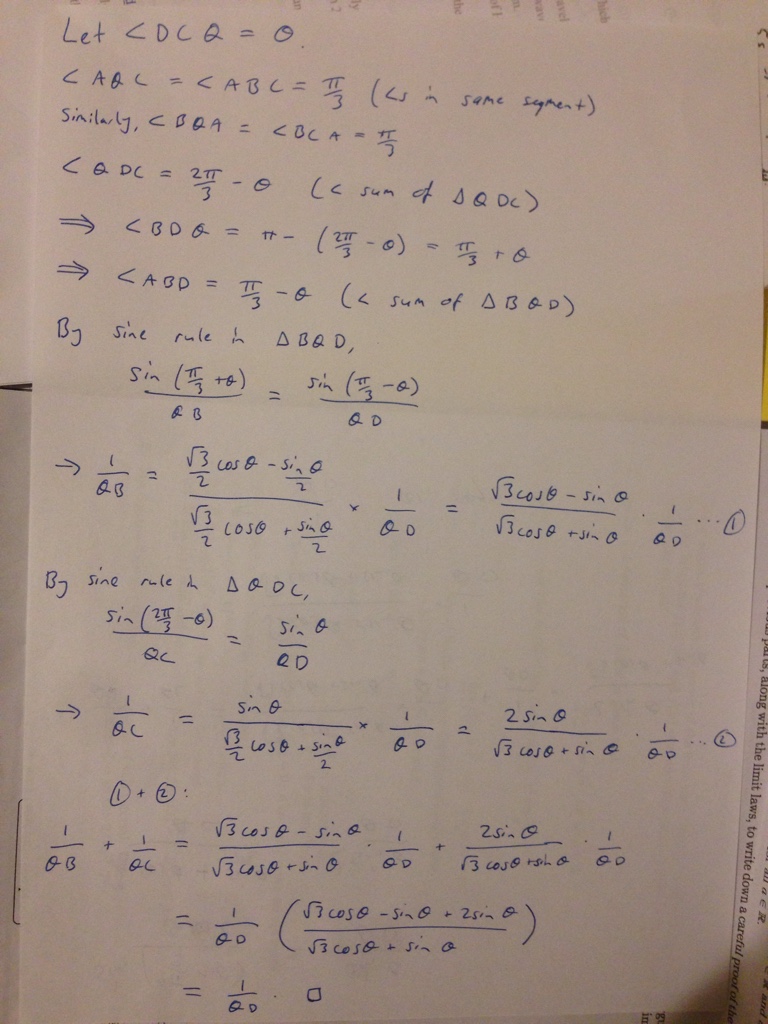 Let <DCQ = θ.
<AQC = <ABC = π/3 (<s in same segment)
Similarly, <BQA = <BCA = π/3
<QDC = 2π/3 - θ (< sum of ΔQDC)
⇒ <BDQ = π - (2π/3 - θ) = π/3 + θ
⇒ <ABD = π/3 - θ (< sum of ΔBQD)
By sine rule in ΔBQD,
sin(π/3 + θ)/QB = sin(π/3 - θ)/QD
→ 1/QB = (√3/2 cosθ - sinθ/2)/(√3/2 cosθ + sinθ/2) × 1/QD = (√3cosθ - sinθ)/(√3cosθ + sinθ) · 1/QD ... ①
By sine rule in ΔQDC,
sin(2π/3 - θ)/QC = sinθ/QD
→ 1/QC = sinθ/(√3/2 cosθ + sinθ/2) × 1/QD = 2sinθ/(√3cosθ + sinθ) · 1/QD ... ②
① + ②:
1/QB + 1/QC = (√3cosθ - sinθ)/(√3cosθ + sinθ) · 1/QD + 2sinθ/(√3cosθ + sinθ) · 1/QD
= 1/QD ((√3cosθ - sinθ + 2sinθ)/(√3cosθ + sinθ))
= 1/QD. □
parts, along with the limit laws, to write down a careful proof of the